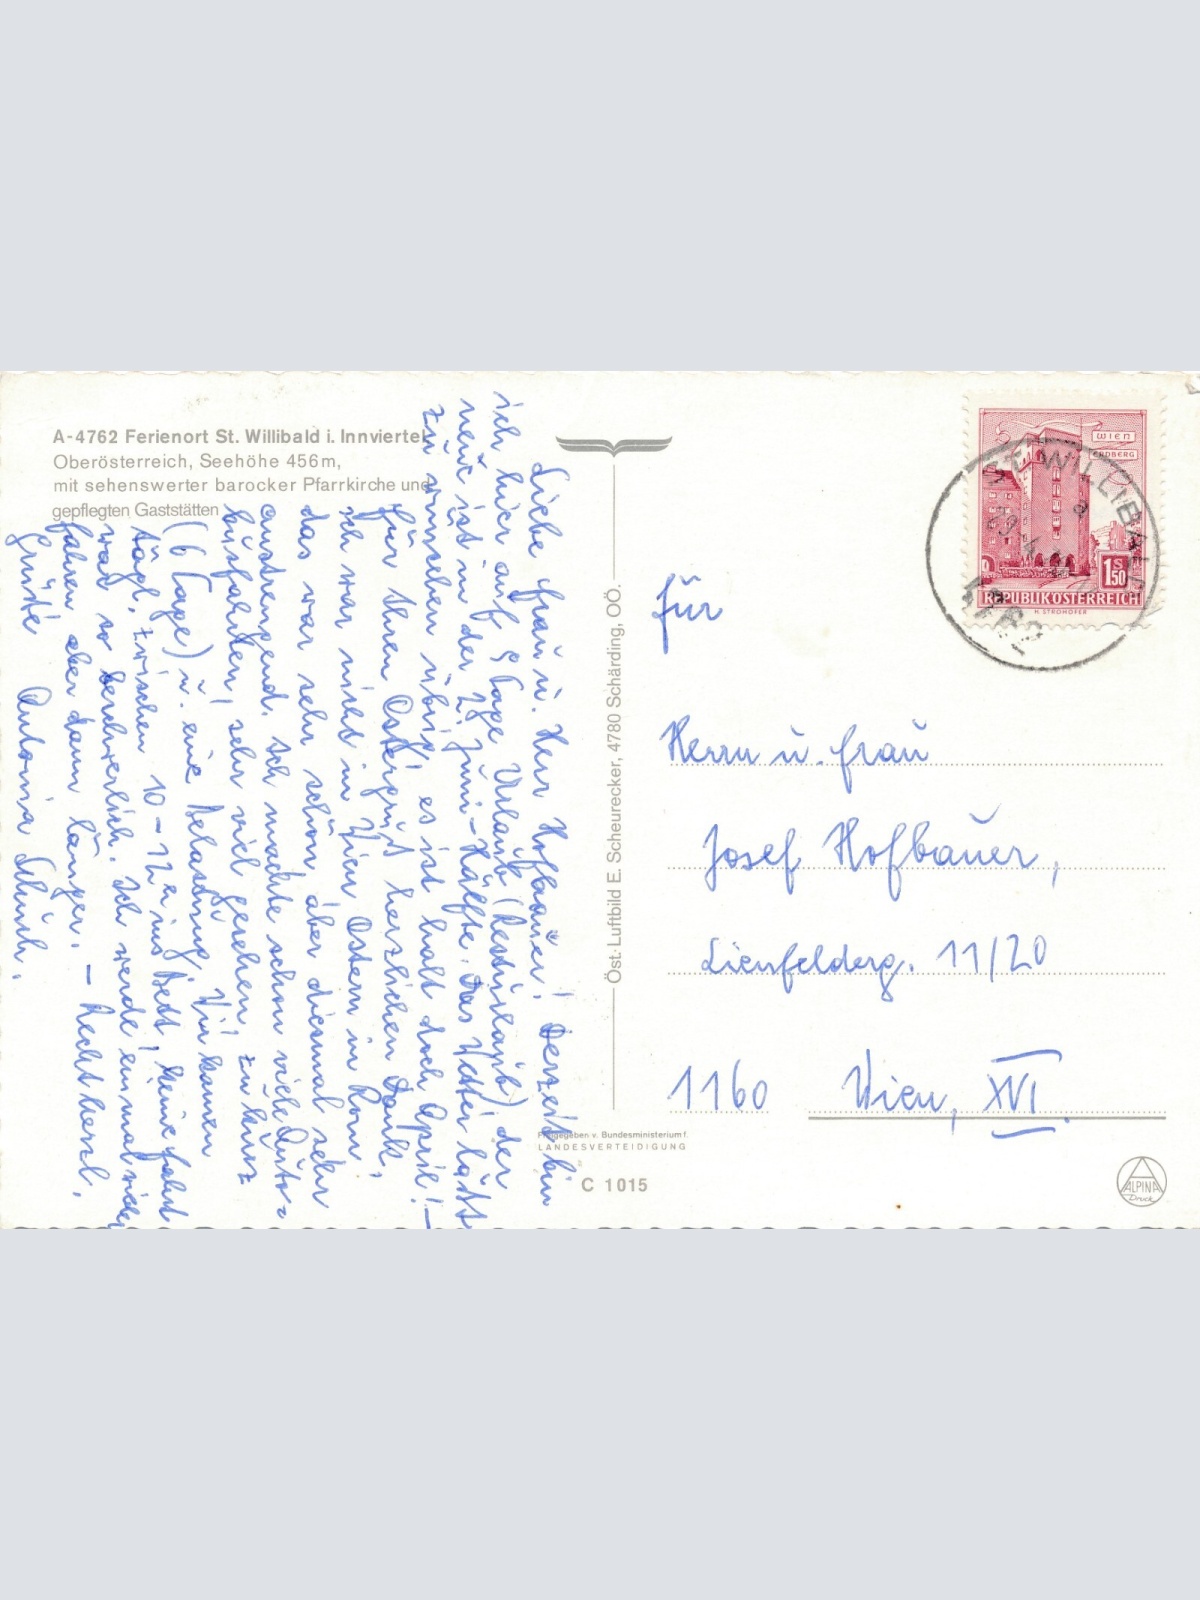 A-4762 Ferienort St. Willibald i. Innviertel
Oberösterreich, Seehöhe 456m,
mit sehenswerter barocker Pfarrkirche und
gepflegten Gaststätten
Liebe Frau u. Herr Hofbauer! Derzeit bin
ich hier auf 5 Tage Urlaub (Resturlaub), der
neue ist in der 2. Juni-Hälfte. Das Wetter läßt
zu wünschen übrig, es ist halt doch April! –
Für Ihren Ostergruß herzlichen Dank,
ich war nicht in Wien, Ostern in Rom
das war sehr schön, aber diesmal sehr
anstrengend. Ich machte schon viele Auto-
busfahrten, sehr viel gesehen, zu kurz
(6 Tage) u. eine Belastung. Wir kamen
tägl. zwischen 10-12h ins Bett, keine Fahrt
war so beschwerlich. Ich werde einmal wieder
fahren aber dann länger. – Recht herzl.
Grüße Antonia
Öst. Luftbild E. Scheurecker, 4780 Schärding, OÖ.
Freigegeben v. Bundesministerium f.
LANDESVERTEIDIGUNG
C 1015
WIEN
ERDBERG
1 S 50
REPUBLIK ÖSTERREICH
H. STROHOFER
ST. WILLIBALD
a
29. 4.
für
Herrn u. Frau
Josef Hofbauer,
Lienfelderg. 11/20
1160 Wien, XVI.
ALPINA
Druck